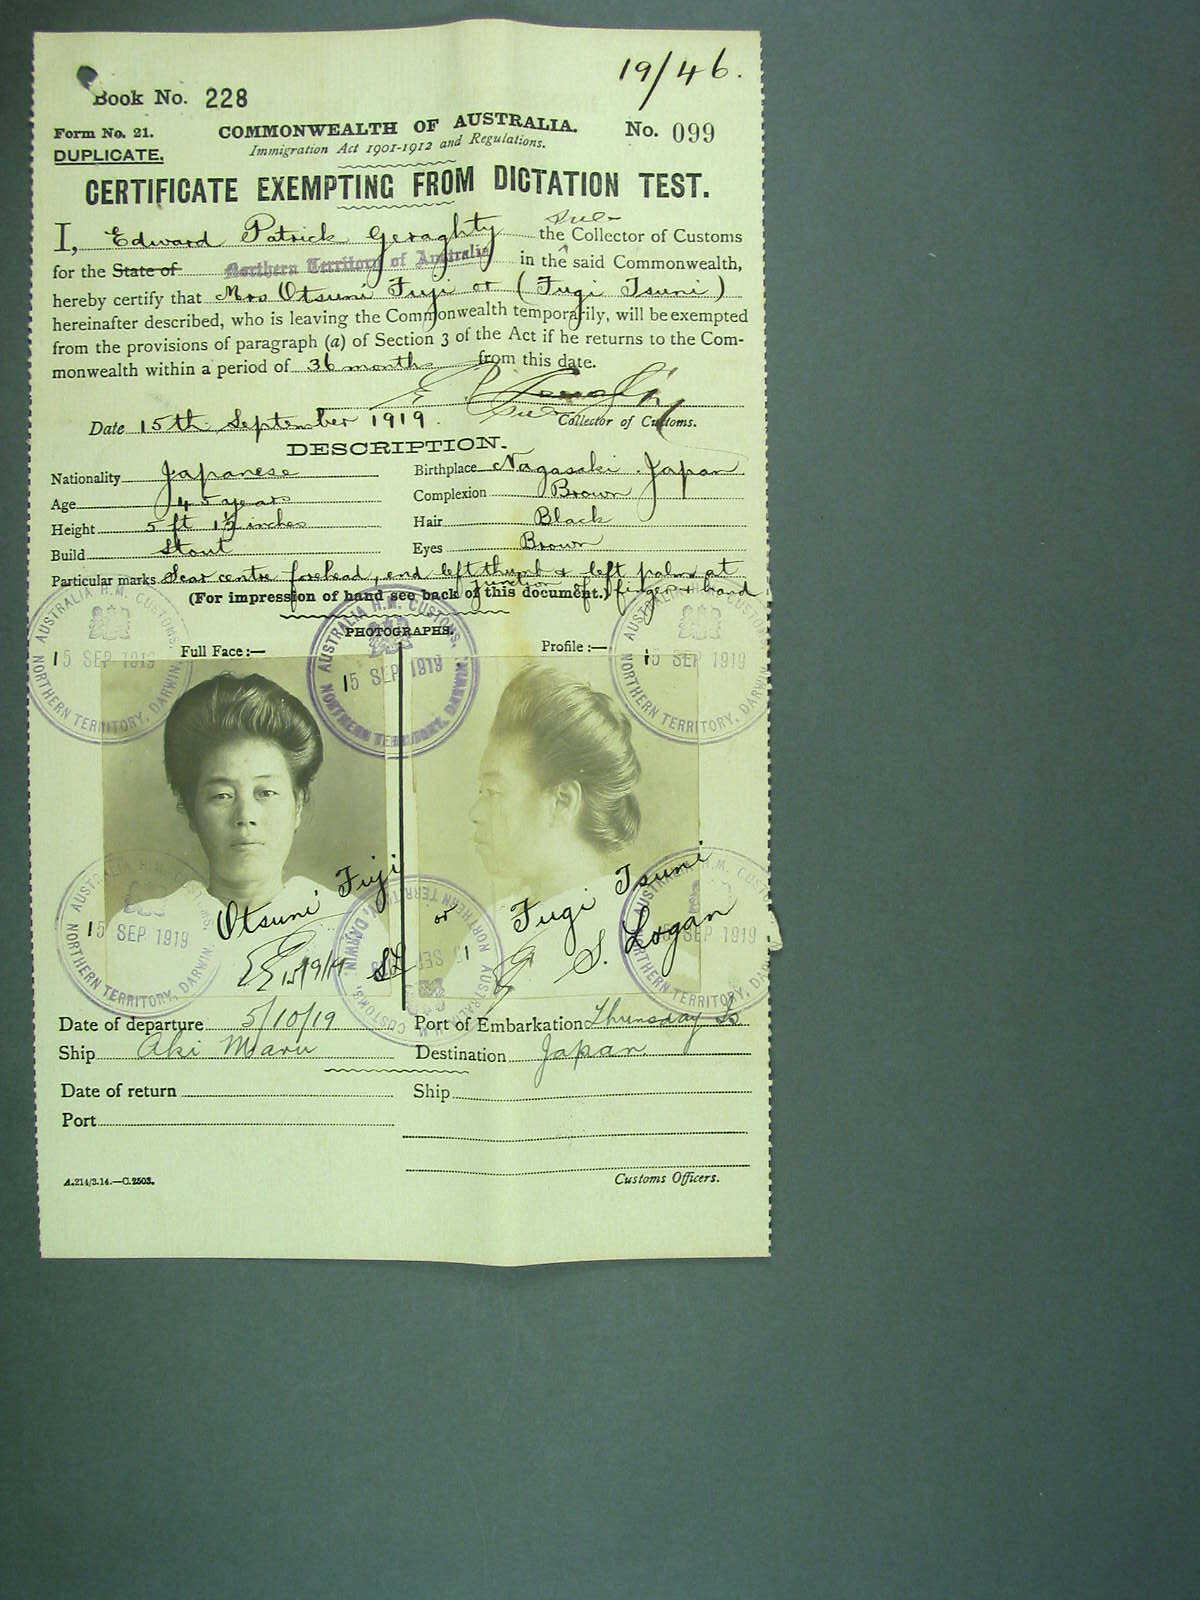 19/46.
Book No. 228
Form No. 21.
COMMONWEALTH OF AUSTRALIA.
No. 099
DUPLICATE.
Immigration Act 1901-1912 and Regulations.
CERTIFICATE EXEMPTING FROM DICTATION TEST.
Sub-
I, Edward Patrick Geraghty the Collector of Customs
for the State of Northern Territory of Australia in the said Commonwealth,
hereby certify that Mrs Otsuni Fuji or (Fugi Tsuni)
hereinafter described, who is leaving the Commonwealth temporarily, will be exempted
from the provisions of paragraph (a) of Section 3 of the Act if he returns to the Com-
monwealth within a period of 36 months from this date.
Date 15th September 1919. Sub Collector of Customs.
DESCRIPTION.
Nationality Japanese Birthplace Nagasaki Japan
Age 45 years Complexion Brown
Height 5 ft 1½ inches Hair Black
Build Stout Eyes Brown
Particular marks Scar centre forehead, end left thumb & left palm at
junction of finger & hand
(For impression of hand see back of this document.)
PHOTOGRAPHS.
Full Face:— Profile:—
AUSTRALIA H.M. CUSTOMS, 15 SEP 1919 NORTHERN TERRITORY, DARWIN.
AUSTRALIA H.M. CUSTOMS, 15 SEP 1919 NORTHERN TERRITORY, DARWIN.
AUSTRALIA H.M. CUSTOMS, 15 SEP 1919 NORTHERN TERRITORY, DARWIN.
Otsuni Fuji or Fugi Tsuni
15/9/19 SL S. Logan
AUSTRALIA H.M. CUSTOMS, 15 SEP 1919 NORTHERN TERRITORY, DARWIN.
AUSTRALIA H.M. CUSTOMS, 15 SEP NORTHERN TERRITORY, DARWIN.
AUSTRALIA H.M. CUSTOMS, 15 SEP 1919 NORTHERN TERRITORY, DARWIN.
Date of departure 5/10/19 Port of Embarkation Thursday Is
Ship Aki Maru Destination Japan
Date of return Ship
Port
A.214/3.14.—C.2503. Customs Officers.